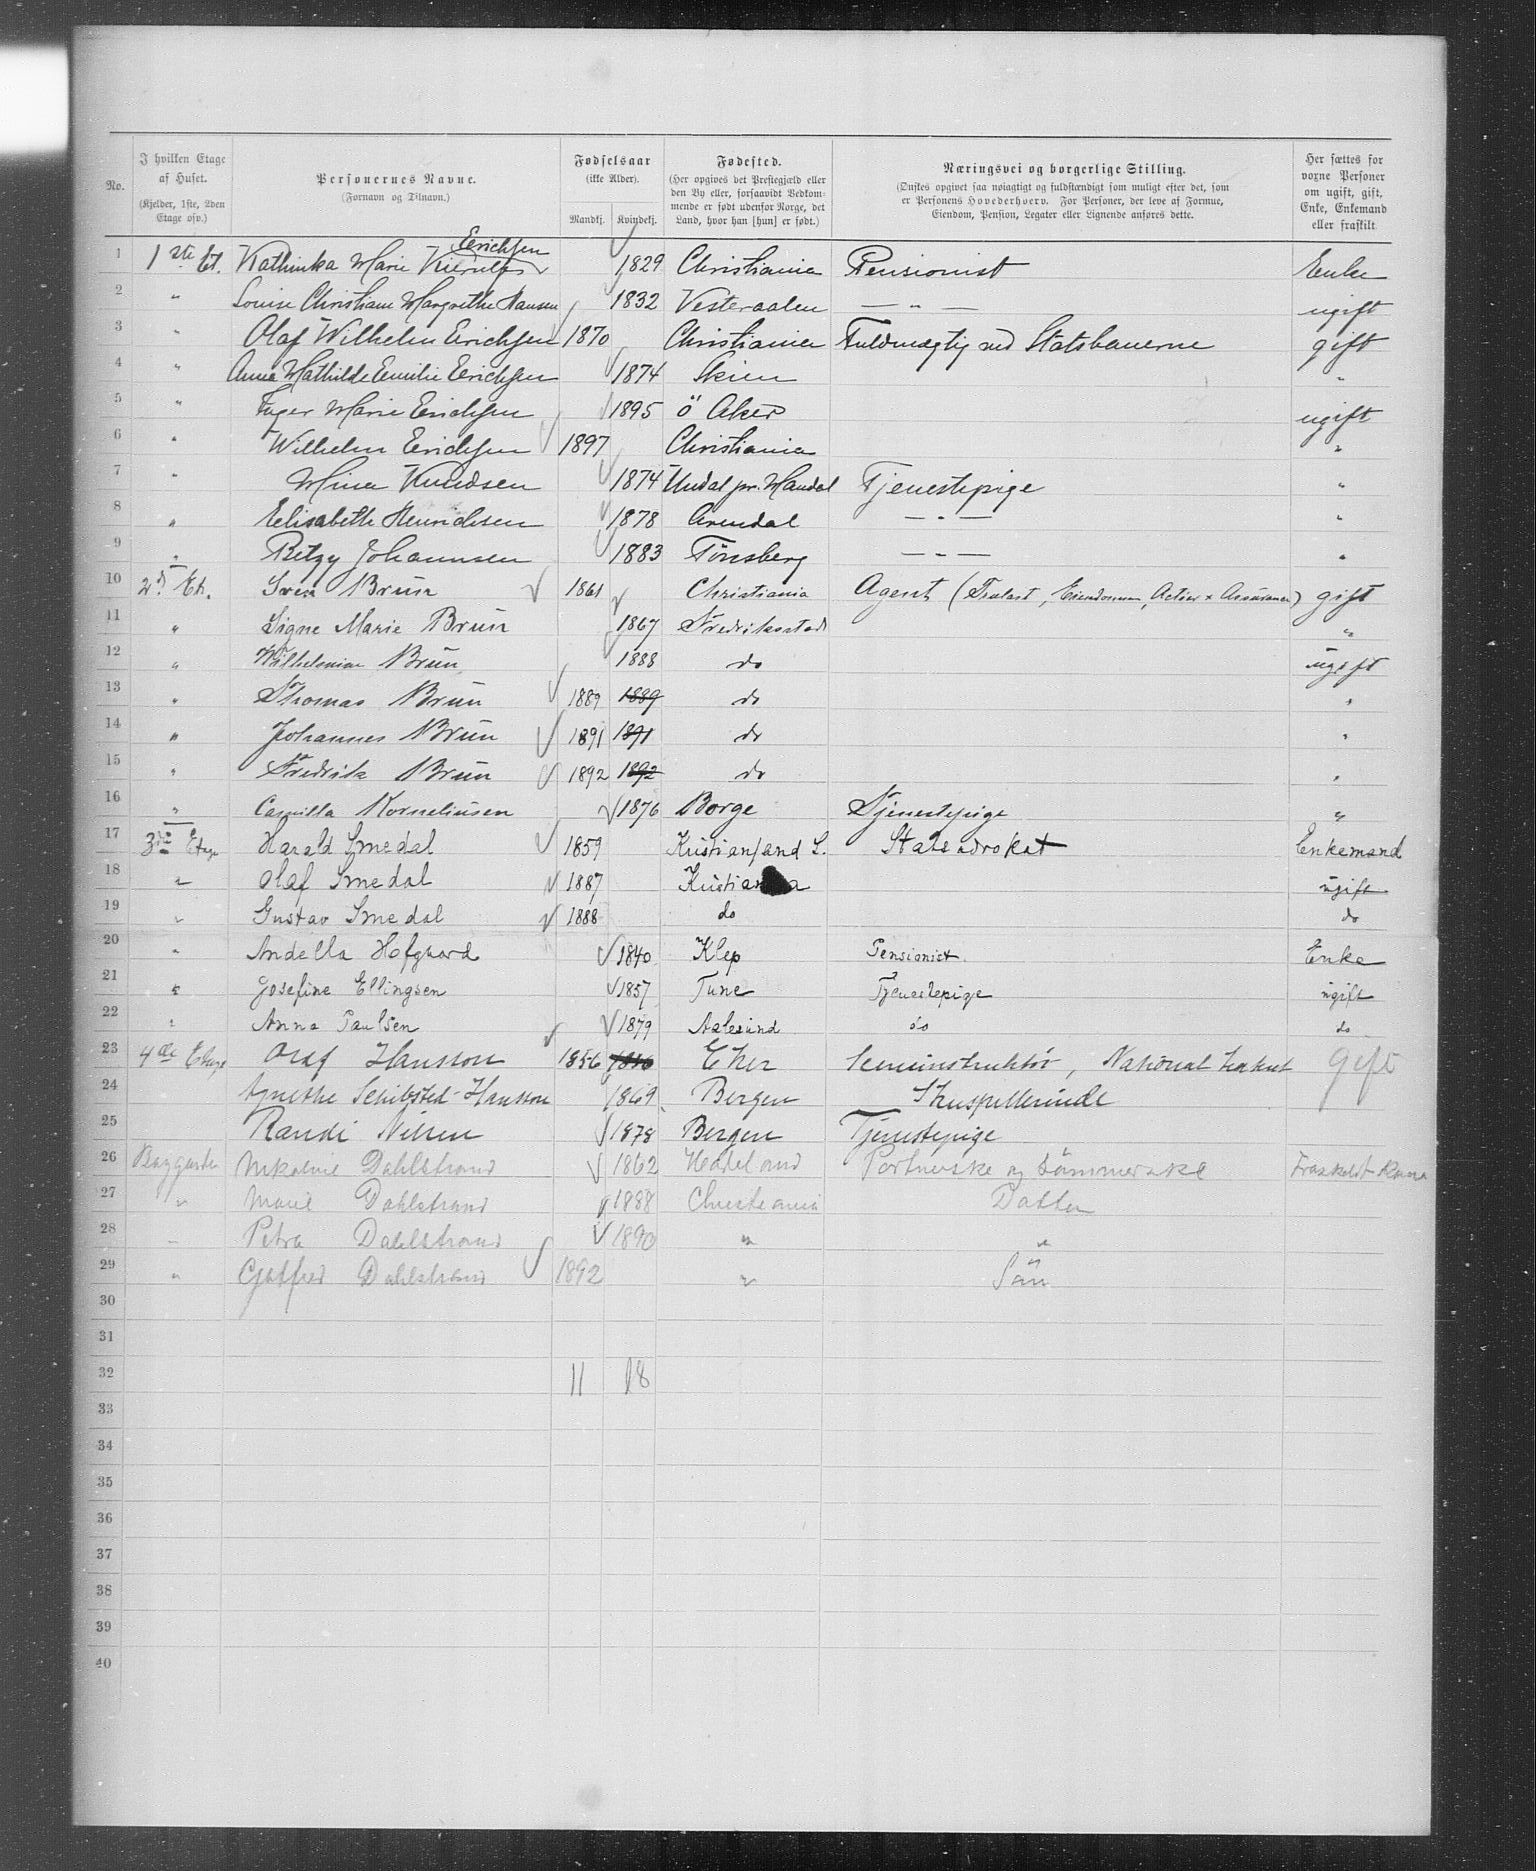 No. I hvilken Etage af Huset. (Kjelder, 1ste, 2den Etage osv.) Personernes Navne. (Fornavn og Tilnavn.) Fødselsaar (ikke Alder). Mandkj. Kvindekj. Fødested. (Her opgives det Prestegjæld eller den By eller, forsaavidt Vedkommende er født udenfor Norge, det Land, hvor han [hun] er født.) Næringsvei og borgerlige Stilling. (Ønskes opgivet saa nøiagtigt og fuldstændigt som muligt efter det, som er Personens Hovederhverv. For Personer, der leve af Formue, Eiendom, Pension, Legater eller Lignende anføres dette.) Her sættes for voxne Personer om ugift, gift, Enke, Enkemand eller fraskilt
1 1ste Et. Kathinka Marie Kierulf Erichsen 1829 Christiania Pensionist Enke
2 " Louise Christiane Margrethe Hansen 1832 Vesteraalen — " — ugift
3 " Olaf Wilhelm Erichsen 1870 Christiania Fuldmægtig ved Statsbanerne gift
4 " Anna Mathilde Emilie Erichsen 1874 Skien "
5 " Inger Marie Erichsen 1895 Ö Aker ugift
6 " Wilhelm Erichsen 1897 Christiania "
7 " Mina Knudsen 1874 Undal pr. Mandal Tjenestepige "
8 " Elisabeth Henrichsen 1878 Arendal — " — "
9 " Betzy Johannsen 1883 Tönsberg — " — "
10 2d Et. Svein Brun 1861 Christiania Agent (Trælast, Eiendomme, Actier & Assurance) gift
11 " Signe Marie Brun 1867 Fredriksstad "
12 " Wilhelmine Brun 1888 do ugift
13 " Thomas Brun 1889 1889 do "
14 " Johannes Brun 1891 1891 do "
15 " Fredrik Brun 1892 1892 do "
16 " Camilla Korneliusen 1876 Borge Tjenestepige "
17 3die Etage Harald Smedal 1859 Kristiansand S. Statsadvokat Enkemand
18 " Olaf Smedal 1887 Kristiania ugift
19 " Gustav Smedal 1888 do do
20 " Andella Hofgaard 1840 Klep Pensionist Enke
21 " Josefine Ellingsen 1857 Tune Tjenestepige ugift
22 " Anna Paulsen 1879 Aalesund do do
23 4de Etage Olaf Hansson 1856 1856 Eker Sceneinstruktör, National teatret gift
24 Agnethe Schibsted-Hansson 1869 Bergen Skuespillerinde
25 Randi Nilsen 1878 Bergen Tjenestepige
26 Baggaarden Nikoline Dahlstrand 1862 Hadeland Portnerske og Sömmerske Fraskilt Kone
27 " Marie Dahlstrand 1888 Christiania Datter
28 " Petra Dahlstrand 1890 " "
29 " Gotfred Dahlstrand 1892 " Sön
30
31
32 11 18
33
34
35
36
37
38
39
40